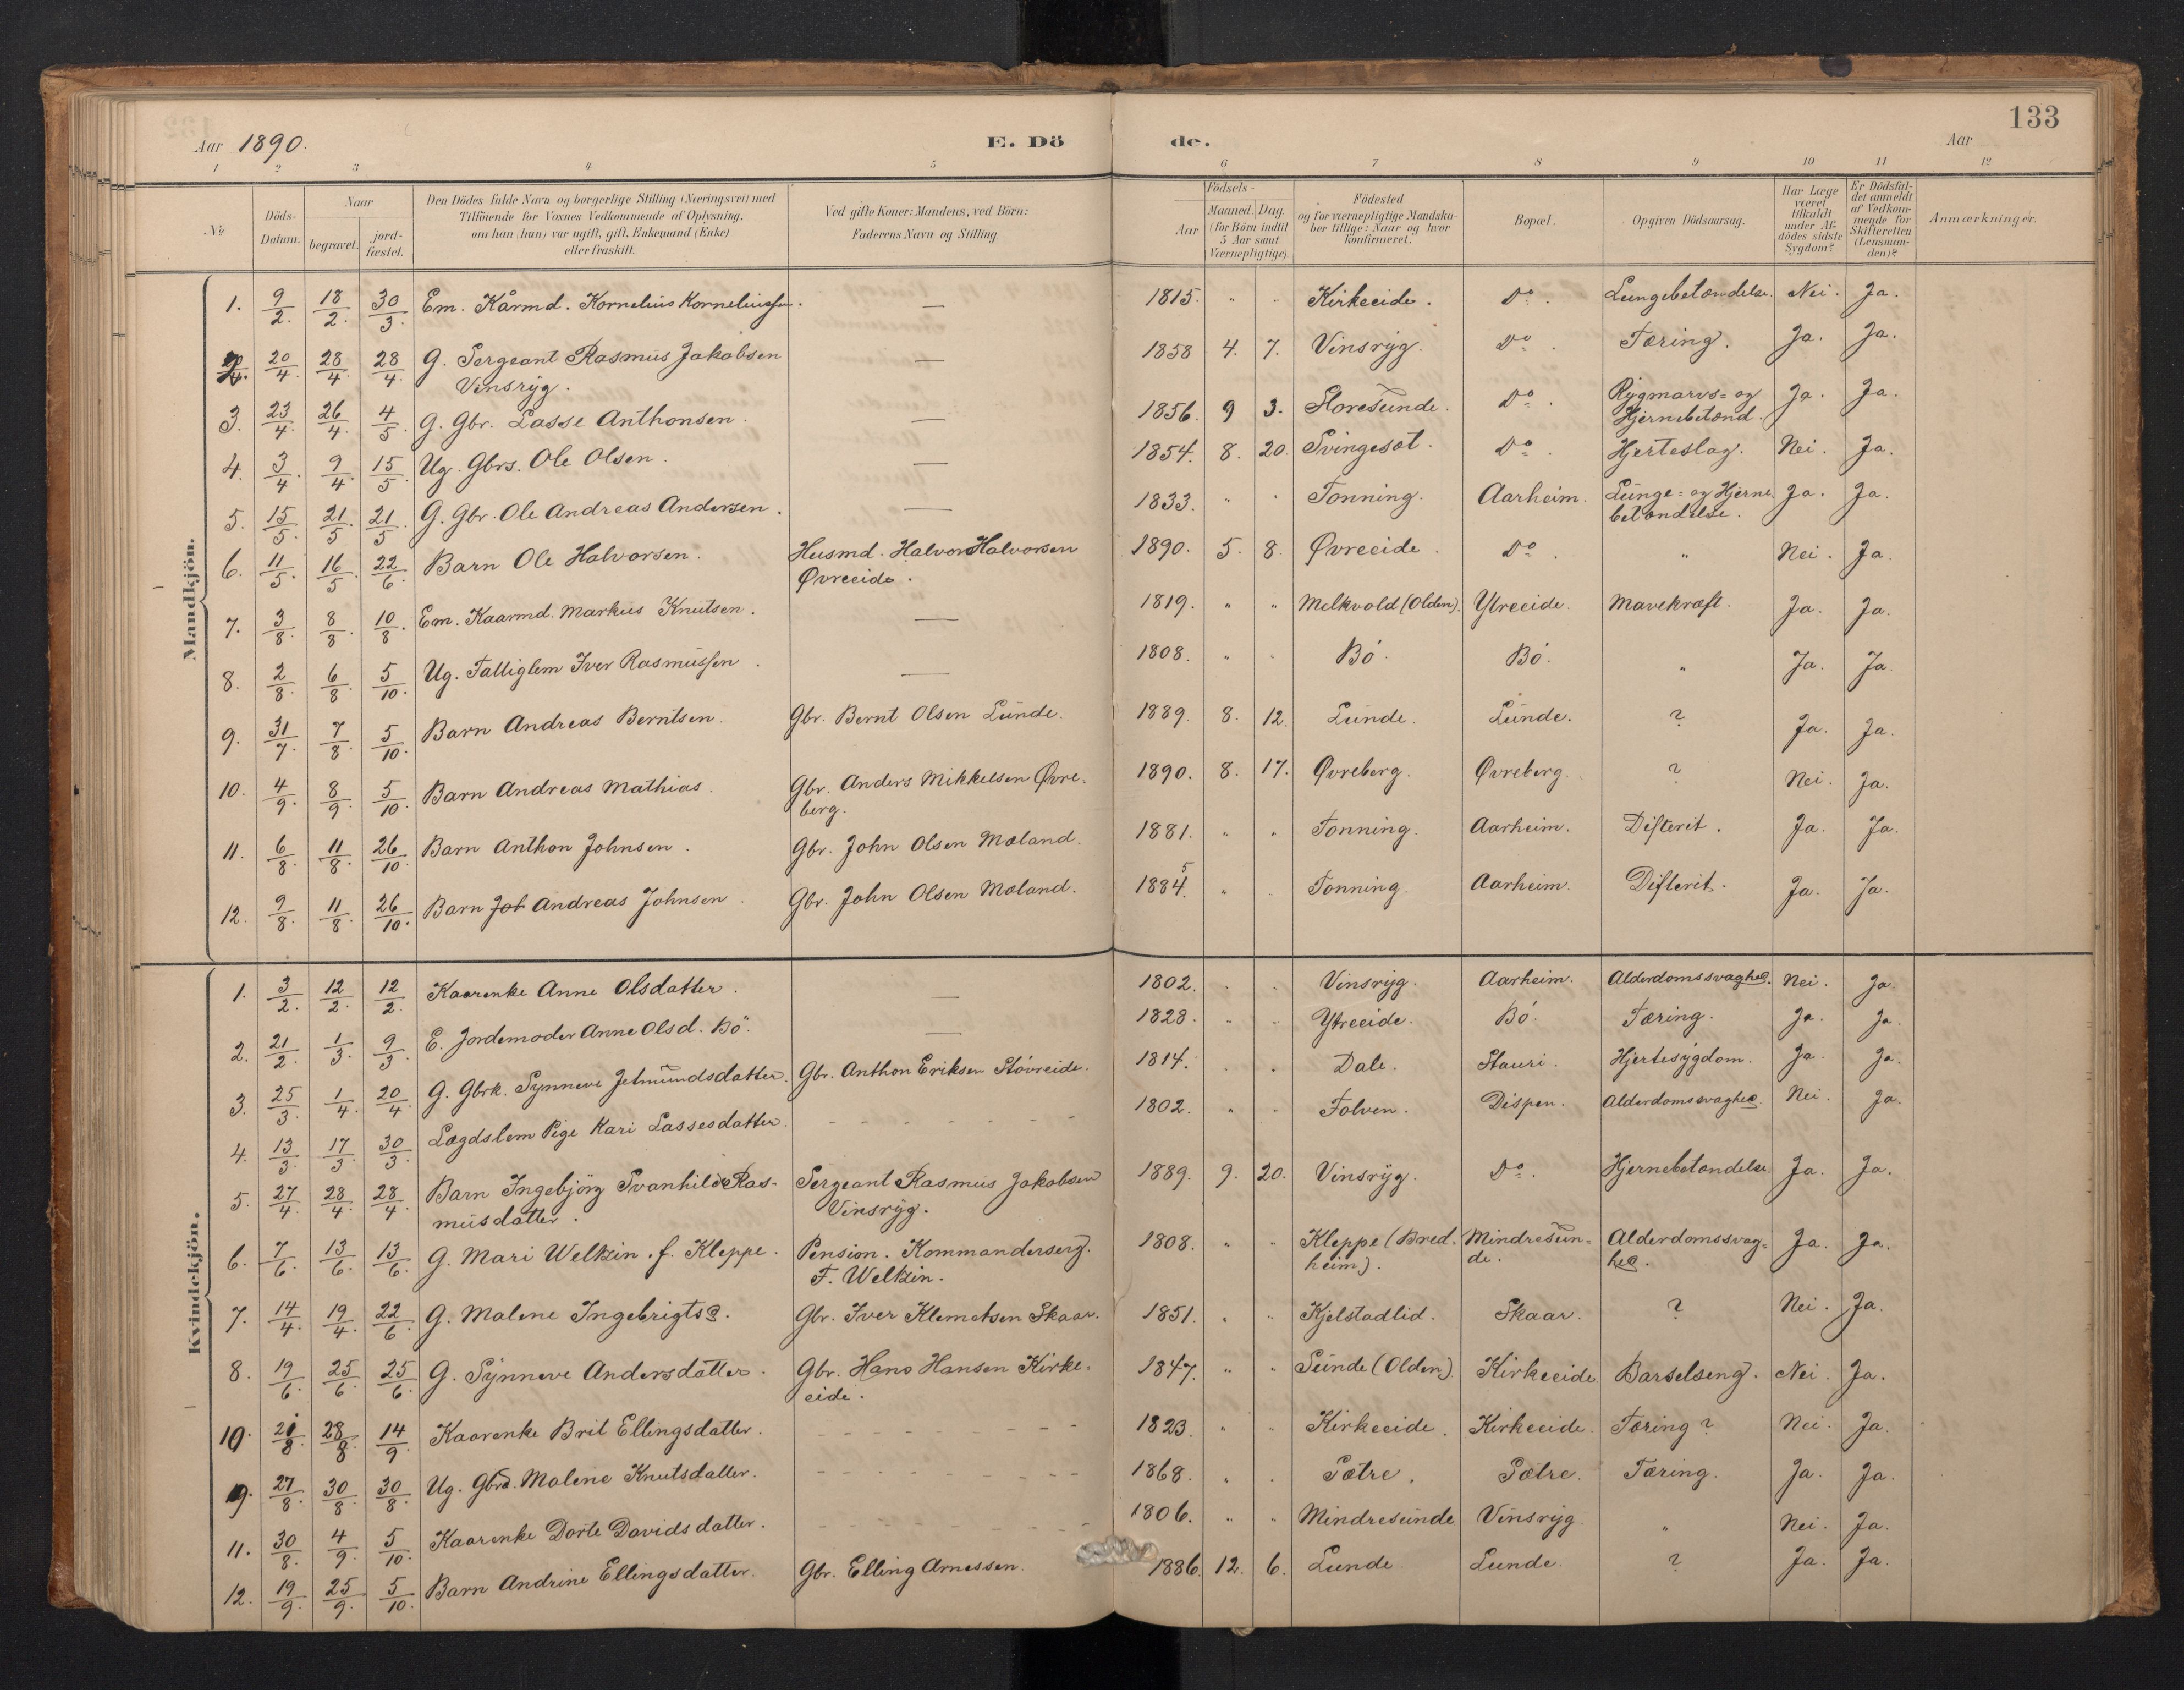 133
Aar 1890. E. Dö de. Aar
1 2 3 4 5 6 7 8 9 10 11 12
№ Döds-Datum. Naar begravet. jord-fæstet. Den Dödes fulde Navn og borgerlige Stilling (Næringsvei) med Tilföiende for Voxnes Vedkommende af Oplysning, om han (hun) var ugift, gift, Enkemand (Enke) eller fraskilt. Ved gifte Koner: Mandens, ved Börn: Faderens Navn og Stilling. Födsels- Aar Maaned. Dag. (for Börn indtil 5 Aar samt Værnepligtige). Födested og for værnepligtige Mandskaber tillige: Naar og hvor konfirmeret. Bopæl. Opgiven Dödsaarsag. Har Læge været tilkaldt under Afdödes sidste Sygdom? Er Dödsfaldet anmeldt af Vedkommende for Skifteretten (Lensmanden)? Anmærkninger.
Mandkjön.
1. 9/2. 18/2. 30/3. Em. Kårmd. Kornelius Korneliussen. — 1815. " " Kirkeeide. Do. Lungebetændelse. Nei. Ja.
2/4. 20/4. 28/4. 28/4. G. Sergeant Rasmus Jakobsen — 1858 4. 7. Vinsryg. Do. Tæring. Ja. Ja.
Vinsryg.
3. 23/4. 26/4. 4/5. G. Gbr. Lasse Anthonsen. — 1856. 9 3. Floresunde. Do. Rygmarvs= og Ja. Ja.
Hjernebetænd.
4. 3/4. 9/4. 15/5. Ug. Gbrs. Ole Olsen. — 1854. 8. 20. Svingesæt. Do. Hjerteslag. Nei. Ja.
5. 15/5. 21/5. 21/5. G. Gbr. Ole Andreas Andersen. — 1833. " " Tonning. Aarheim. Lunge= og Hjerne Ja. Ja.
betændelse.
6. 11/5. 16/5. 22/6. Barn Ole Halvorsen. Husmd. Halvor Halvorsen 1890. 5. 8. Øvreeide. Do. " Nei. Ja.
Øvreeide.
7. 3/8. 8/8. 10/8. Em. Kaarmd. Markus Knutsen. — 1819. " " Melkvold (Olden). Ytreeide. Mavekræft. Ja. Ja.
8. 2/8. 6/8. 5/10. Ug. Fattiglem Iver Rasmussen. — 1808. " " Bö. Bö. " Ja. Ja.
9. 31/7. 7/8. 5/10. Barn Andreas Berntsen. Gbr. Bernt Olsen Lunde. 1889. 8. 12. Lunde. Lunde. ? Ja. Ja.
10. 4/9. 8/9. 5/10. Barn Andreas Mathias. Gbr. Anders Mikkelsen Øvre- 1890. 8. 17. Øvreberg. Øvreberg. ? Nei. Ja.
berg.
11. 6/8. 11/8. 26/10. Barn Anthon Johnsen. Gbr. John Olsen Mæland. 1881. " " Tonning. Aarheim. Difterit. Ja. Ja.
5
12. 9/8. 11/8. 26/10. Barn Joh Andreas Johnsen. Gbr. John Olsen Mæland. 1884. " " Tonning. Aarheim. Difterit. Ja. Ja.
Kvindekjön.
1. 3/2. 12/2. 12/2. Kaarenke Anne Olsdatter. — 1802. " " Vinsryg. Aarheim. Alderdomssvaghed. Nei. Ja.
2. 21/2. 1/3. 9/3. E. Jordemoder Anne Olsd. Bö. — 1828. " " Ytreeide. Bö. Tæring. Ja. Ja.
3. 25/3. 1/4. 20/4. G. Gbrk. Synneve Jetmundsdatter. Gbr. Anthon Eriksen Stövreide. 1814. " " Dale. Stauri. Hjertesygdom. Ja. Ja.
4. 13/3. 17/3. 30/3. Lægdslem Pige Kari Lassesdatter. - - - - - - - 1802. " " Folven. Dispen. Alderdomssvaghed. Nei. Ja.
5. 27/4. 28/4. 28/4. Barn Ingebjörg Svanhilde Ras- Sergeant Rasmus Jakobsen 1889. 9. 20. Vinsryg. Do. Hjernebetændelse. Ja. Ja.
musdatter. Vinsryg.
6. 7/6. 13/6. 13/6. G. Mari Weltzin. f. Kleppe. Pension. Kommanderserg. 1808. " " Kleppe (Bred. Mindresun= Alderdomssvag= Ja. Ja.
F. Weltzin. heim). de. hed.
7. 14/4. 19/4. 22/6. G. Malene Ingebrigtsd. Gbr. Iver Klemetsen Skaar. 1851. " " Kjelstadlid. Skaar. ? Nei. Ja.
8. 19/6. 25/6. 25/6. G. Synneve Andersdatter. Gbr. Hans Hansen Kirke- 1847. " " Sunde (Olden). Kirkeeide Barselseng. Nei. Ja.
eide.
10. 21/8. 28/8. 14/9. Kaarenke Brit Ellingsdatter. - - - - - - - 1823. " " Kirkeeide. Kirkeeide. Tæring? Nei. Ja.
9. 27/8. 30/8. 30/8. Ug. Gbrd. Malene Knutsdatter. - - - - - - - 1868. " " Sætre. Sætre. Tæring. Ja. Ja.
11. 30/8. 4/9. 5/10. Kaarenke Dorte Davidsdatter. - - - - - - - 1806. " " Mindresunde Vinsryg. " Nei. Ja.
12. 19/9. 25/9. 5/10. Barn Andrine Ellingsdatter. Gbr. Elling Arnessen. 1886. 12. 6. Lunde Lunde. ? Ja. Ja.